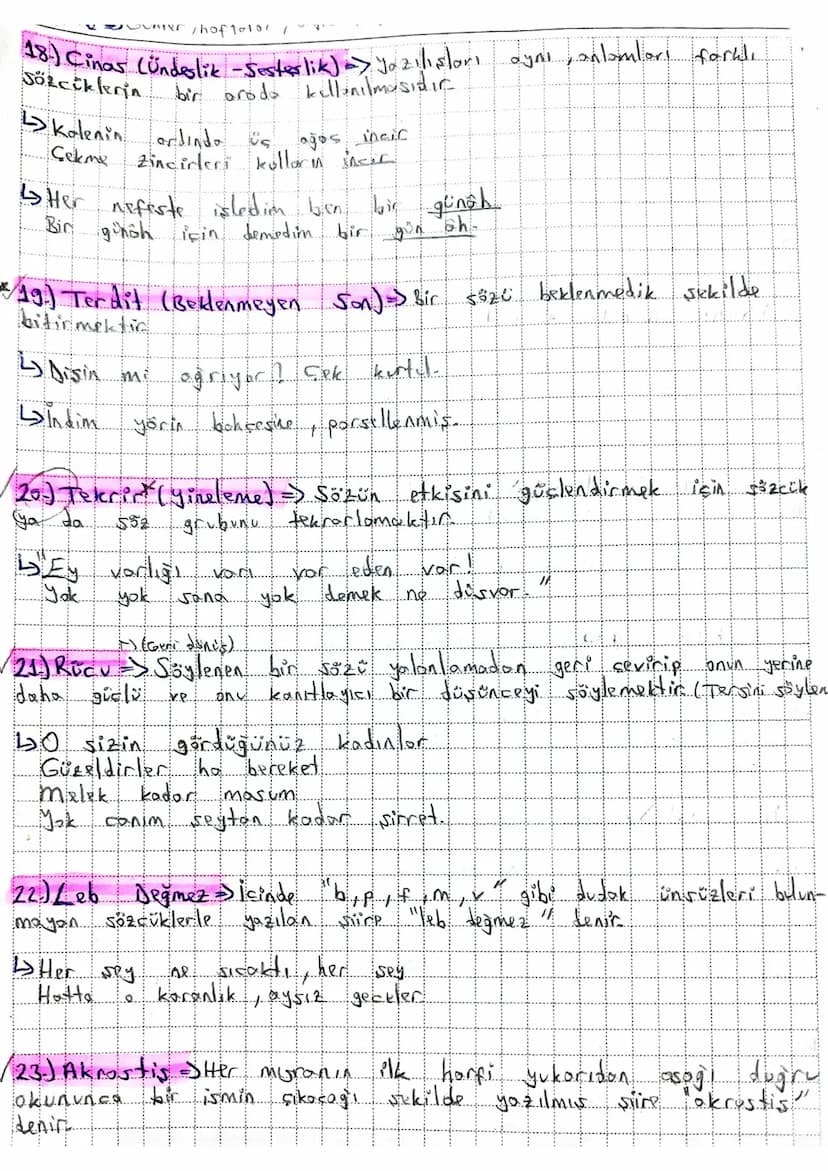 18.) Cinas (Ündeşlik - Sesteşlik) => Yazılışları aynı, anlamları farklı
sözcüklerin bir arada kullanılmasıdır.
↳ Kalenin ardında üç ağaç incir
Çekme zincirleri kolların incir
↳ Her nefeste işledim ben bir günâh
Bir günâh için demedim bir gün âh.
19.) Terdit (Beklenmeyen Son) => Bir sözü beklenmedik şekilde
bitirmektir.
↳ Dişin mi ağrıyor? Çek kurtul.
↳ İndim yârin bahçesine, parsellenmiş.
20.) Tekrir* (Yineleme) => Sözün etkisini güçlendirmek için sözcük
ya da söz grubunu tekrarlamaktır.
↳ "Ey varlığı varı var eden var!
Yok yok sana yok demek ne düşvar."
→ (Geri dönüş)
21) Rücu => Söylenen bir sözü yalanlamadan geri çevirip onun yerine
daha güçlü ve onu kanıtlayıcı bir düşünceyi söylemektir. (Tersini söylen
↳ O sizin gördüğünüz kadınlar
Güzeldirler ha bereket
Melek kadar masum
Yok canım şeytan kadar şirret.
22.) Leb Değmez => İçinde "b, p, f, m, v" gibi dudak ünsüzleri bulun-
mayan sözcüklerle yazılan şiire "leb değmez" denir.
↳ Her şey ne sıcaktı, her şey
Hatta o karanlık, aysız geceler
23.) Akrostiş => Her mısranın ilk harfi yukarıdan aşağı doğru
okununca bir ismin çıkacağı şekilde yazılmış şiire "akrostiş"
denir.